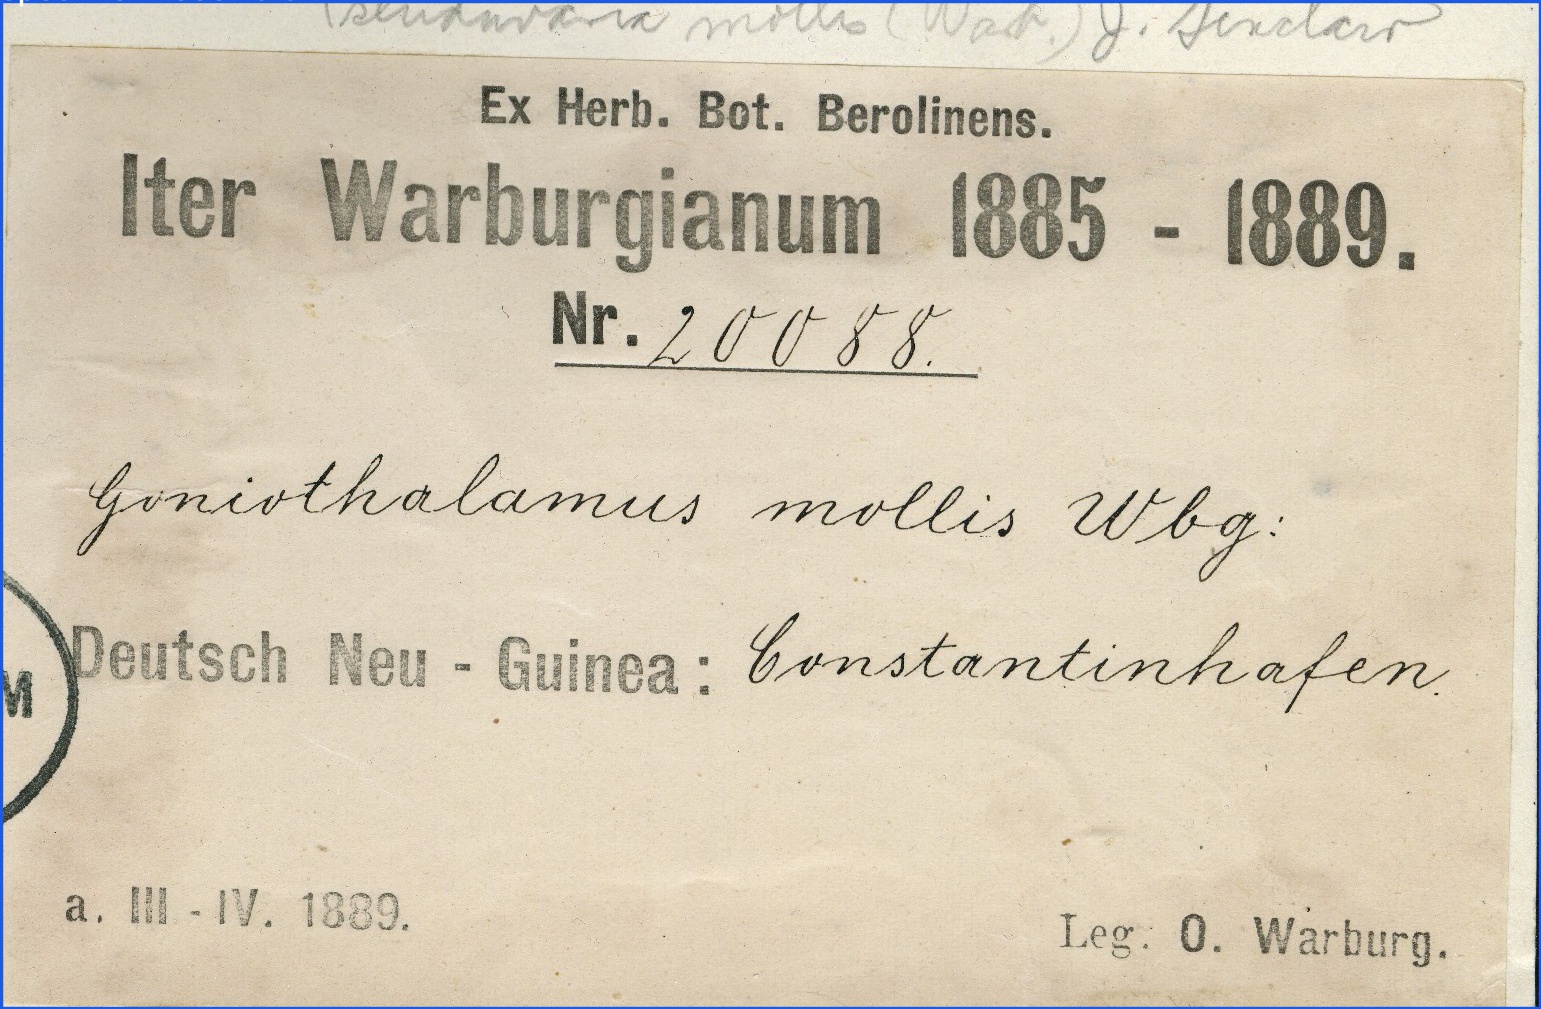 mollis (Warb.) J. Sinclair
Ex Herb. Bot. Berolinens.
Iter Warburgianum 1885 - 1889.
Nr. 20088.
Goniothalamus mollis Wbg:
Deutsch Neu - Guinea: Constantinhafen.
M
a. III - IV. 1889.
Leg. O. Warburg.